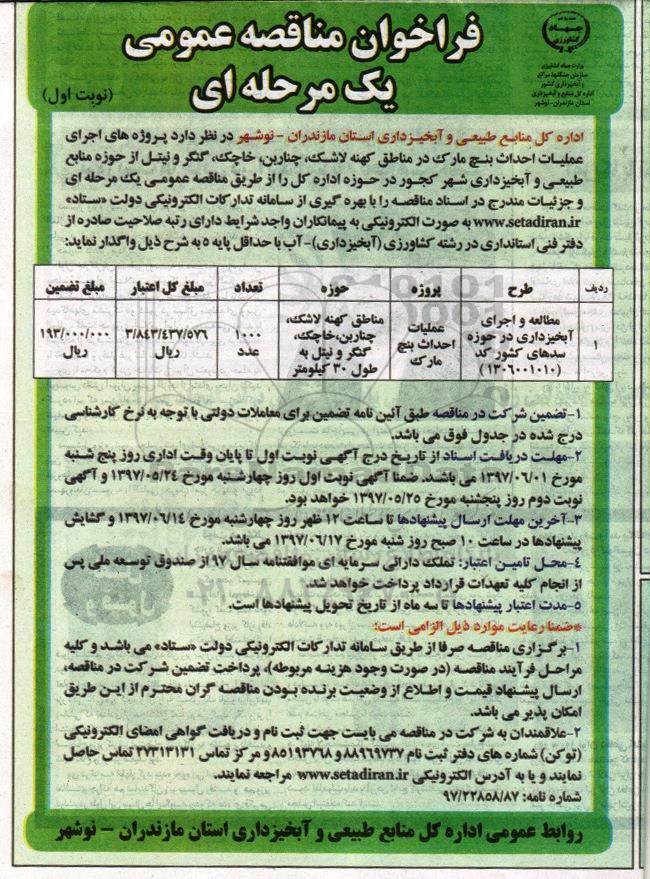 فراخوان مناقصه عمومی
یک مرحله ای
(نوبت اول)
جهاد
کشاورزی
وزارت جهاد کشاورزی
سازمان جنگلها، مراتع
و آبخیزداری کشور
اداره کل منابع طبیعی و آبخیزداری
استان مازندران-نوشهر
اداره کل منابع طبیعی و آبخیزداری استان مازندران - نوشهر در نظر دارد پروژه های اجرای
عملیات احداث بنچ مارک در مناطق کهنه لاشک، چناربن، خاچک، گنگر و نیتل از حوزه منابع
طبیعی و آبخیزداری شهر کجور در حوزه اداره کل را از طریق مناقصه عمومی یک مرحله ای
و جزئیات مندرج در اسناد مناقصه را با بهره گیری از سامانه تدارکات الکترونیکی دولت «ستاد»
www.setadiran.ir به صورت الکترونیکی به پیمانکاران واجد شرایط دارای رتبه صلاحیت صادره از
دفتر فنی استانداری در رشته کشاورزی (آبخیزداری)-آب با حداقل پایه ۵ به شرح ذیل واگذار نماید:
ردیف طرح پروژه حوزه تعداد مبلغ کل اعتبار مبلغ تضمین
۱ مطالعه و اجرای آبخیزداری در حوزه سدهای کشور کد (۱۳۰۶۰۰۱۰۱۰) عملیات احداث بنچ مارک مناطق کهنه لاشک، چناربن،خاچک، گنگر و نیتل به طول ۳۰ کیلومتر ۱۰۰۰ عدد ۳/۸۴۳/۴۳۷/۵۷۶ ریال ۱۹۳/۰۰۰/۰۰۰ ریال
۱-تضمین شرکت در مناقصه طبق آئین نامه تضمین برای معاملات دولتی با توجه به نرخ کارشناسی
درج شده در جدول فوق می باشد.
۲-مهلت دریافت اسناد از تاریخ درج آگهی نوبت اول تا پایان وقت اداری روز پنج شنبه
مورخ ۱۳۹۷/۰۶/۰۱ می باشد. ضمنا آگهی نوبت اول روز چهارشنبه مورخ ۱۳۹۷/۰۵/۲۴ و آگهی
نوبت دوم روز پنجشنبه مورخ ۱۳۹۷/۰۵/۲۵ خواهد بود.
۳-آخرین مهلت ارسال پیشنهادها تا ساعت ۱۲ ظهر روز چهارشنبه مورخ ۱۳۹۷/۰۶/۱۴ و گشایش
پیشنهادها در ساعت ۱۰ صبح روز شنبه مورخ ۱۳۹۷/۰۶/۱۷ می باشد.
۴-محل تامین اعتبار: تملک دارائی سرمایه ای موافقتنامه سال ۹۷ از صندوق توسعه ملی پس
از انجام کلیه تعهدات قرارداد پرداخت خواهد شد.
۵-مدت اعتبار پیشنهادها تا سه ماه از تاریخ تحویل پیشنهادها است.
*ضمنا رعایت موارد ذیل الزامی است:
۱-برگزاری مناقصه صرفا از طریق سامانه تدارکات الکترونیکی دولت «ستاد» می باشد و کلیه
مراحل فرآیند مناقصه (در صورت وجود هزینه مربوطه)، پرداخت تضمین شرکت در مناقصه،
ارسال پیشنهاد قیمت و اطلاع از وضعیت برنده بودن مناقصه گران محترم از این طریق
امکان پذیر می باشد.
۲-علاقمندان به شرکت در مناقصه می بایست جهت ثبت نام و دریافت گواهی امضای الکترونیکی
(توکن) شماره های دفتر ثبت نام ۸۸۹۶۹۷۳۷ و ۸۵۱۹۳۷۶۸ و مرکز تماس ۲۷۳۱۳۱۳۱ تماس حاصل
نمایند و یا به آدرس الکترونیکی www.setadiran.ir مراجعه نمایند.
شماره نامه: ۹۷/۲۲۸۵۸/۸۷
روابط عمومی اداره کل منابع طبیعی و آبخیزداری استان مازندران - نوشهر